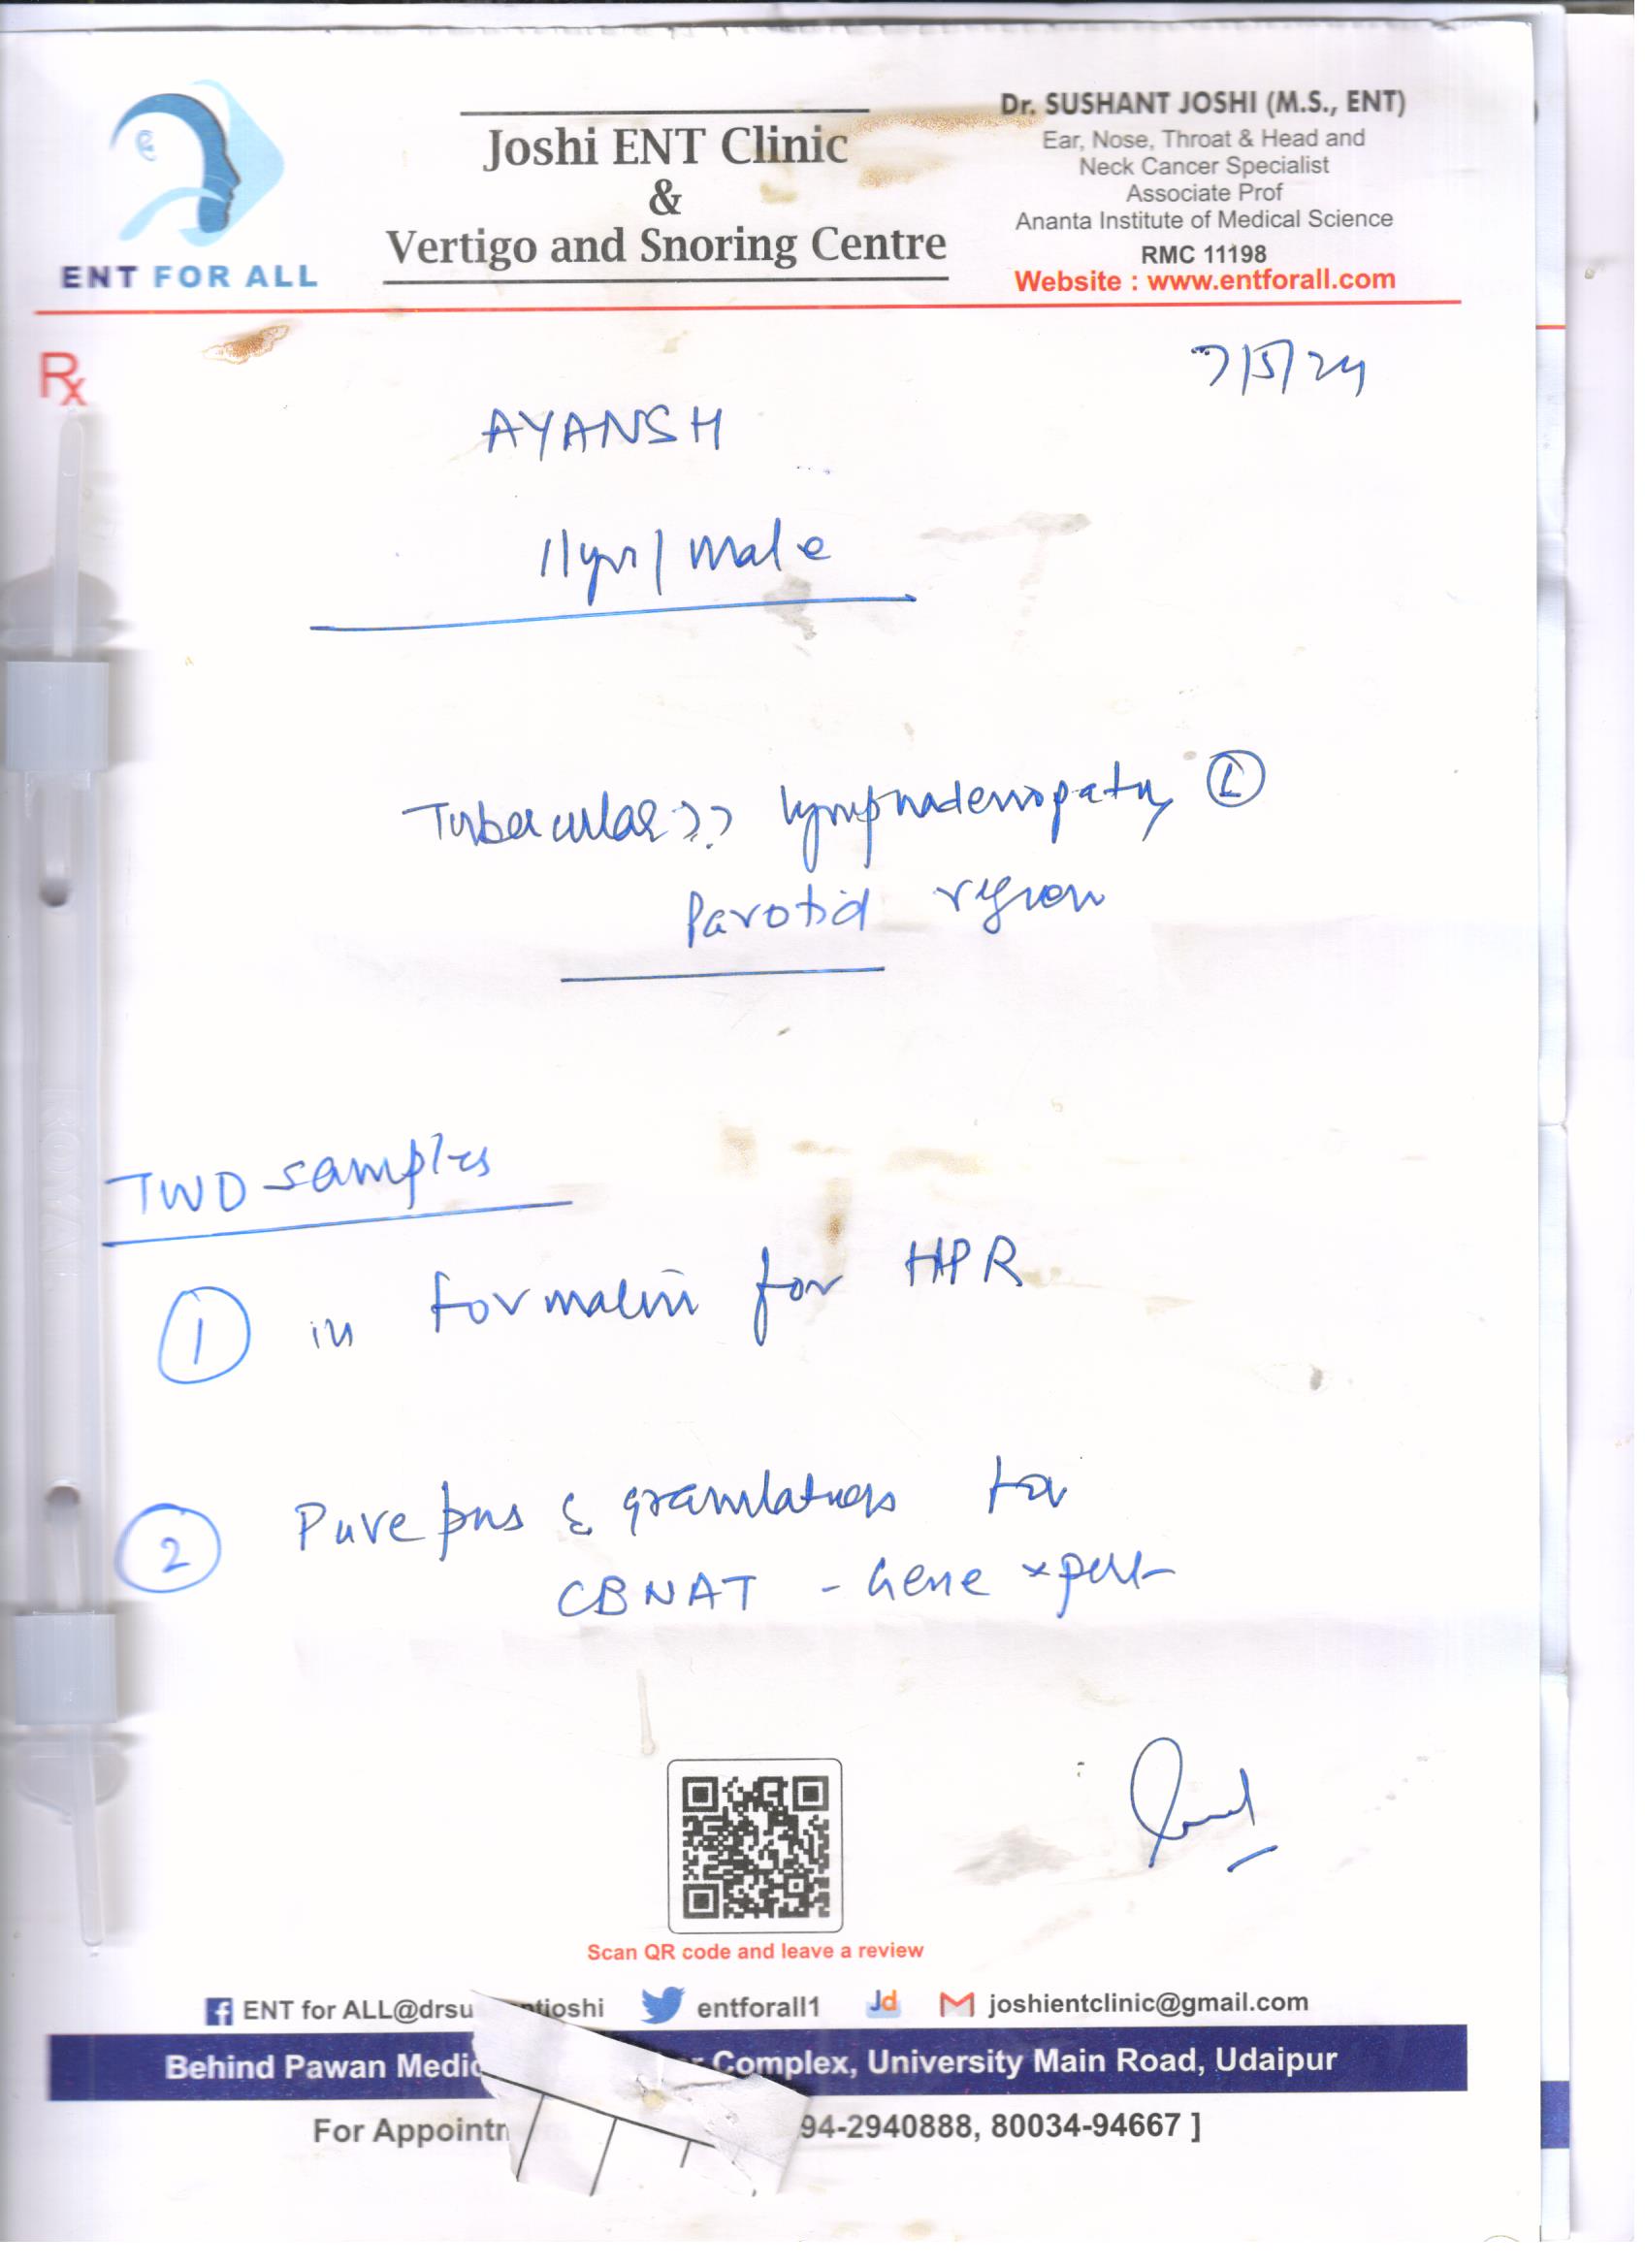 Joshi ENT Clinic
&
Vertigo and Snoring Centre
ENT FOR ALL
Dr. SUSHANT JOSHI (M.S., ENT)
Ear, Nose, Throat & Head and
Neck Cancer Specialist
Associate Prof
Ananta Institute of Medical Science
RMC 11198
Website : www.entforall.com
Rx
7/5/24
AYANSH
11yr/male
Tubercular?? lymphadenopathy Ⓛ
Parotid region
TWO samples
① in formalin for HPR
② Pure pus & granulations for
CBNAT - Gene xpert
Scan QR code and leave a review
ENT for ALL@drsu ntjoshi entforall1 Jd joshientclinic@gmail.com
Behind Pawan Medic Complex, University Main Road, Udaipur
For Appointm 94-2940888, 80034-94667 ]